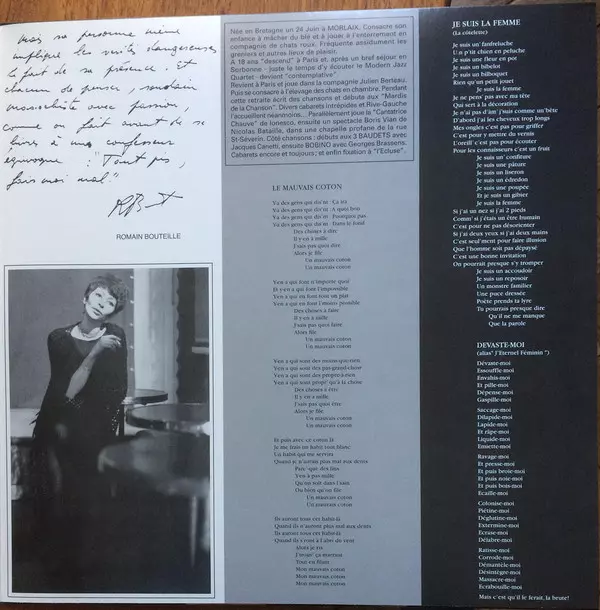 mais sa personne même
implique les visites dangereuses
le fait de sa présence. Et
chacun de penser, soudain
masochiste avec passion,
comme on fait avant de se
livrer à un confesseur
équivoque : "Tant pis,
fais-moi mal."
ROMAIN BOUTEILLE
Née en Bretagne un 24 Juin à MORLAIX. Consacre son
enfance à mâcher du blé et à jouer à l'enterrement en
compagnie de chats roux. Fréquente assidument les
greniers et autres lieux de plaisir.
A 18 ans "descend" à Paris et, après un bref séjour en
Sorbonne - juste le temps d'y écouter le Modern Jazz
Quartet - devient "contemplative".
Revient à Paris et joue dans la compagnie Julien Berteau.
Puis se consacre à l'élevage des chats en chambre. Pendant
cette retraite écrit des chansons et débute aux "Mardis
de la Chanson". Divers cabarets intrépides et Rive-Gauche
l'accueillent néanmoins... Parallèlement joue la "Cantatrice
Chauve" de Ionesco, ensuite un spectacle Boris Vian de
Nicolas Bataille, dans une chapelle profane de la rue
St-Séverin. Côté chansons : débuts aux 3 BAUDETS avec
Jacques Canetti, ensuite BOBINO avec Georges Brassens.
Cabarets encore et toujours; et enfin fixation à "l'Ecluse".
LE MAUVAIS COTON
Ya des gens qui dis'nt : Ça ira
Ya des gens qui dis'nt : A quoi bon
Ya des gens qui dis'nt : Pourquoi pas
Ya des gens qui dis'nt : Dans le fond
Des choses à dire
Il y en à mille
J'sais pas quoi dire
Alors je file
Un mauvais coton
Un mauvais coton
Yen a qui font n'importe quoi
Et y'en a qui font l'impossible
Yen a qui en font tout un plat
Yen a qui en font l'moins possible
Des choses à faire
Il y en à mille
J'sais pas quoi faire
Alors je file
Un mauvais coton
Un mauvais coton
Yen a qui sont des moins-que-rien
Yen a qui sont des pas-grand-chose
Yen a qui sont des propre-à-rien
Yen a qui sont propr' qu'à la chose
Des choses à être
Il y en a mille
J'sais pas quoi être
Alors je file
Un mauvais coton
Un mauvais coton
Et puis avec ce coton là
Je me frais un habit tout blanc
Un habit qui me servira
Quand je n'aurai plus mal aux dents
Parc'que des fins
Y'en à pas mille
Qu'on soit dans l'eau
Ou bien qu'on file
Un mauvais coton
Un mauvais coton
Ils auront tous cet habit-là
Quand ils n'auront plus mal aux dents
Ils auront tous cet habit-là
Quand ils s'ront à l'abri du vent
Alors je ris
J'aurai ça moreau
Tout en filant
Mon mauvais coton
Mon mauvais coton
Mon mauvais coton
JE SUIS LA FEMME
(La côtelette)
Je suis un' fanfreluche
U n p'tit chien en peluche
Je suis une fleur en pot
Je suis un bibelot
Je suis un bilboquet
Rien qu'un petit jouet
Je suis la femme
Je ne pens' pas avec ma tête
Qui sert à la décoration
Je n'ai pas d'âm' j'suis comme un'bête
D'abord j'ai les cheveux trop longs
Mes ongles c'est pas pour griffer
C'est pour y mettre du vernis
L'oreill' c'est pas pour écouter
Pour les connaisseurs c'est un fruit
Je suis un' confiture
Je suis une pâture
Je suis un liseron
Je suis un édredon
Je suis une poupée
Et je suis un gibier
Je suis la femme
Si j'ai un nez si j'ai 2 pieds
Comm' si j'étais un être humain
C'est pour ne pas désorienter
Si j'ai deux yeux si j'ai deux mains
C'est seul'ment pour faire illusion
Que l'homme soit pas dépaysé
C'est une bonne invitation
On pourrait presque s'y tromper
Je suis un accoudoir
Je suis un reposoir
Un monstre familier
Une puce dressée
Poète prends ta lyre
Tu pourrais presque dire
Qu'il ne me manque
Que la parole
DEVASTE-MOI
(alias" l'Eternel Féminin ")
Dévaste-moi
Essouffle-moi
Envahis-moi
Et pille-moi
Dépense-moi
Gaspille-moi
Saccage-moi
Dilapide-moi
Lapide-moi
Et râpe-moi
Liquide-moi
Emiette-moi
Ravage-moi
Et presse-moi
Et puis broie-moi
Et puis noie-moi
Et puis bois-moi
Ecaille-moi
Colonise-moi
Piétine-moi
Déglutine-moi
Extermine-moi
Ecrase-moi
Délabre-moi
Ratisse-moi
Corrode-moi
Démantèle-moi
Désintègre-moi
Massacre-moi
Ecrabouille-moi
Mais c'est qu'il le ferait, la brute!